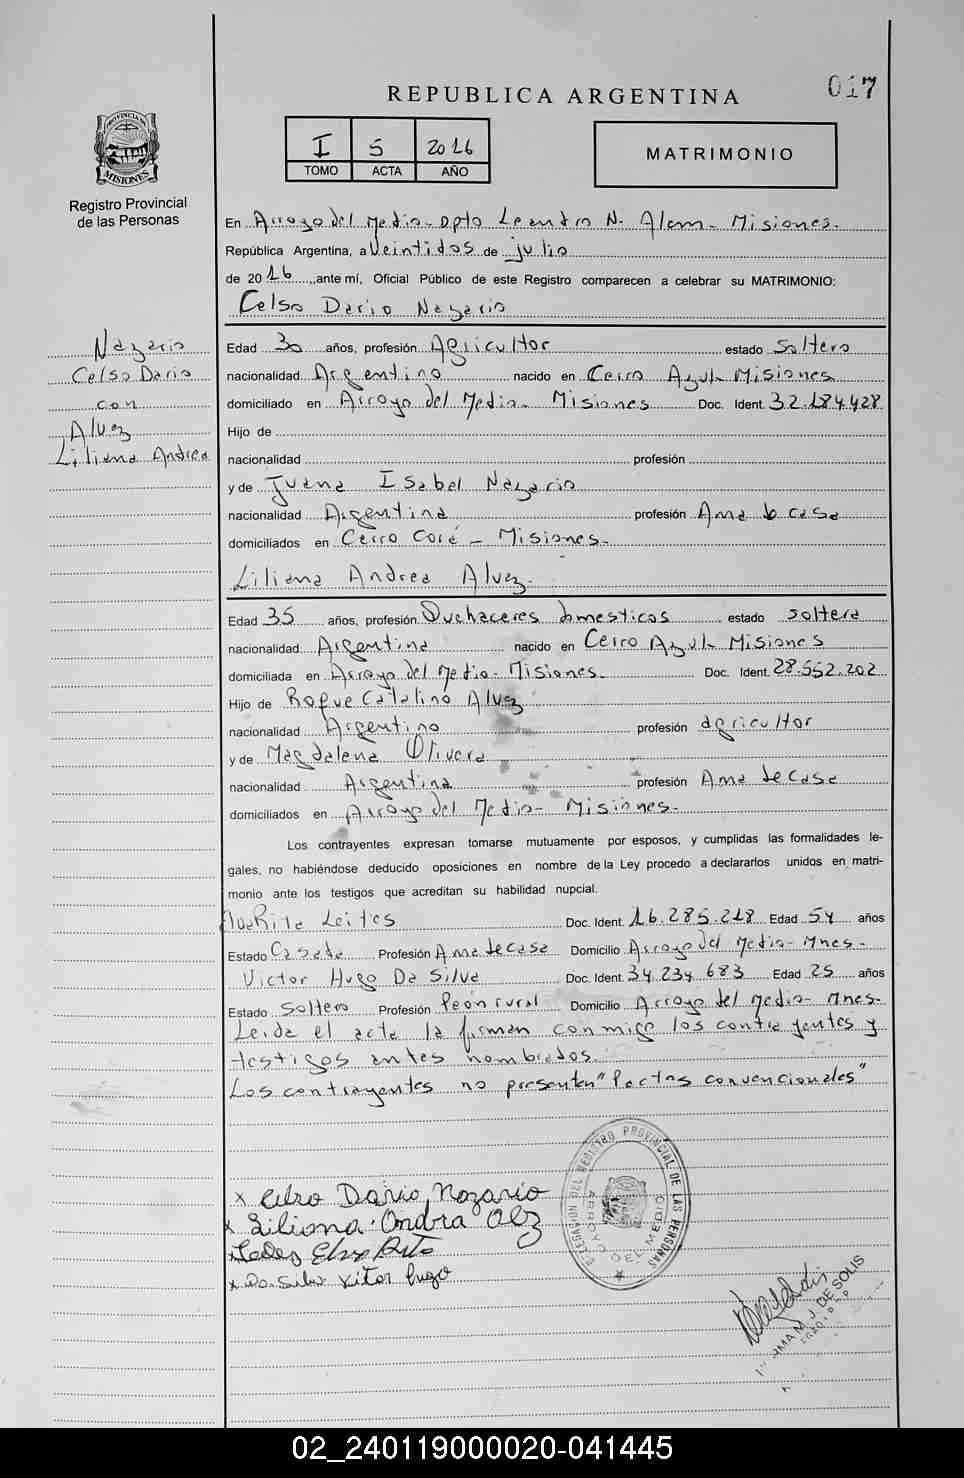 017
REPUBLICA ARGENTINA
I 5 2016
TOMO ACTA AÑO
MATRIMONIO
PROVINCIA DE
MISIONES
Registro Provincial
de las Personas
En Arroyo del Medio - Dpto Leandro N. Alem - Misiones.
República Argentina, a Veintidos de julio
de 2016, ante mí, Oficial Público de este Registro comparecen a celebrar su MATRIMONIO:
Celso Dario Nazario
Nazario
Celso Dario
con
Alvez
Liliana Andrea
Edad 30 años, profesión Agricultor estado Soltero
nacionalidad Argentino nacido en Cerro Azul - Misiones
domiciliado en Arroyo del Medio - Misiones Doc. Ident. 32.184.428
Hijo de
nacionalidad profesión
y de Juana Isabel Nazario
nacionalidad Argentina profesión Ama de casa
domiciliados en Cerro Corá - Misiones -
Liliana Andrea Alvez -
Edad 35 años, profesión Quehaceres domesticos estado soltera
nacionalidad Argentina nacido en Cerro Azul - Misiones
domiciliada en Arroyo del Medio - Misiones Doc. Ident. 28.552.202
Hijo de Roque Catalino Alvez
nacionalidad Argentino profesión agricultor
y de Magdalena Olivera
nacionalidad Argentina profesión Ama de casa
domiciliados en Arroyo del Medio - Misiones -
Los contrayentes expresan tomarse mutuamente por esposos, y cumplidas las formalidades le-
gales, no habiéndose deducido oposiciones en nombre de la Ley procedo a declararlos unidos en matri-
monio ante los testigos que acreditan su habilidad nupcial.
Leites Doc. Ident. 16.285.218 Edad 54 años
Estado Casada Profesión Ama de casa Domicilio Arroyo del Medio - Mnes -
Victor Hugo Da Silva Doc. Ident. 34.234.683 Edad 25 años
Estado Soltero Profesión Peón rural Domicilio Arroyo del Medio - Mnes -
Leida el acta la firman conmigo los contrayentes y
testigos antes nombrados.
Los contrayentes no presentan "Pactos convencionales"
x Celso Dario Nazario
x Liliana
x Da Silva Victor hugo
DELEGACION DEL REGISTRO PROVINCIAL DE LAS PERSONAS
ARROYO DEL MEDIO
M. J. DE SOLIS
02_240119000020-041445